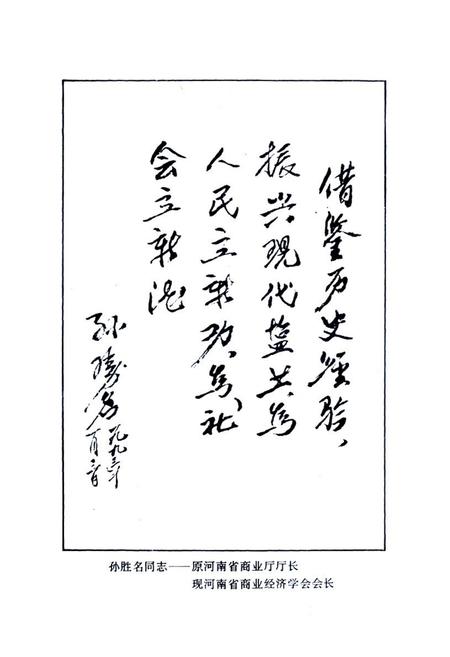 借鉴历史经验、
振兴现代盐业为
人民立新功、为社
会立新
孙胜名
一九九三年
孙胜名同志——原河南省商业厅厅长
现河南省商业经济学会会长